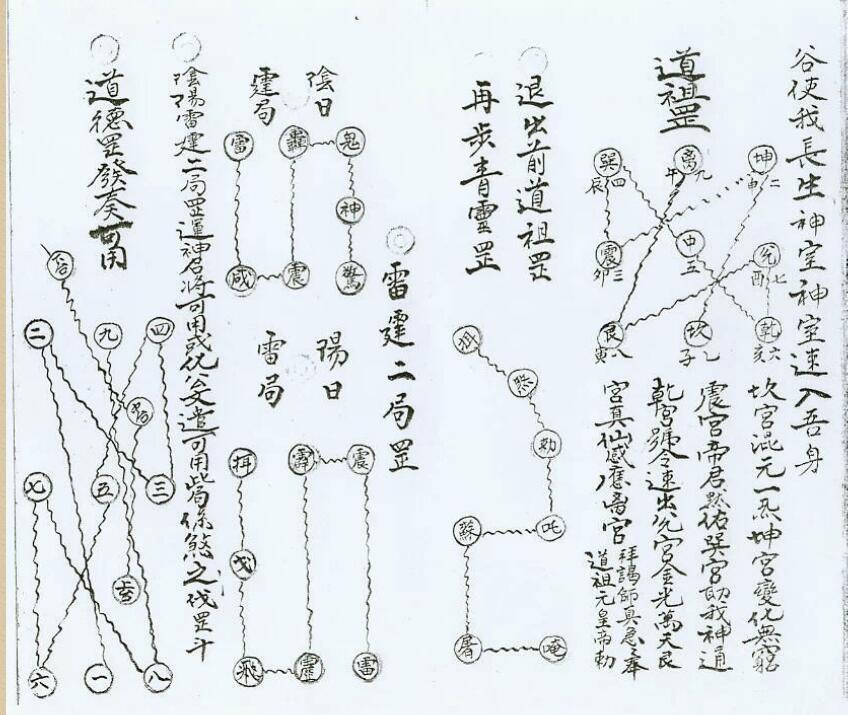 谷使我長生神室神室速入吾身
道祖罡
巽四辰
離九午
坤二申
震三卯
中五
兌七酉
艮八寅
坎子
乾六亥
坎宮混元一炁坤宮變化無窮
震宮帝君默佑巽宮助我神通
乾宮號令速出兌宮金光萬天艮
宮真仙感應离宮
拜謁師真急急奉
道祖元皇帝勅
退出前道祖罡
再步青靈罡
煞
劾
吒
蘇
屠
唵
雷霆二局罡
陰日
霆局
雷
轟
鬼
神
驚
震
咸
陽日
雷局
霹
震
戈
雷
陰陽雷霆二局罡運神召將可用或化公文遣可用此局係煞之伐罡斗
道德罡發奏可用
二
九
四
七
五
三
六
一
八